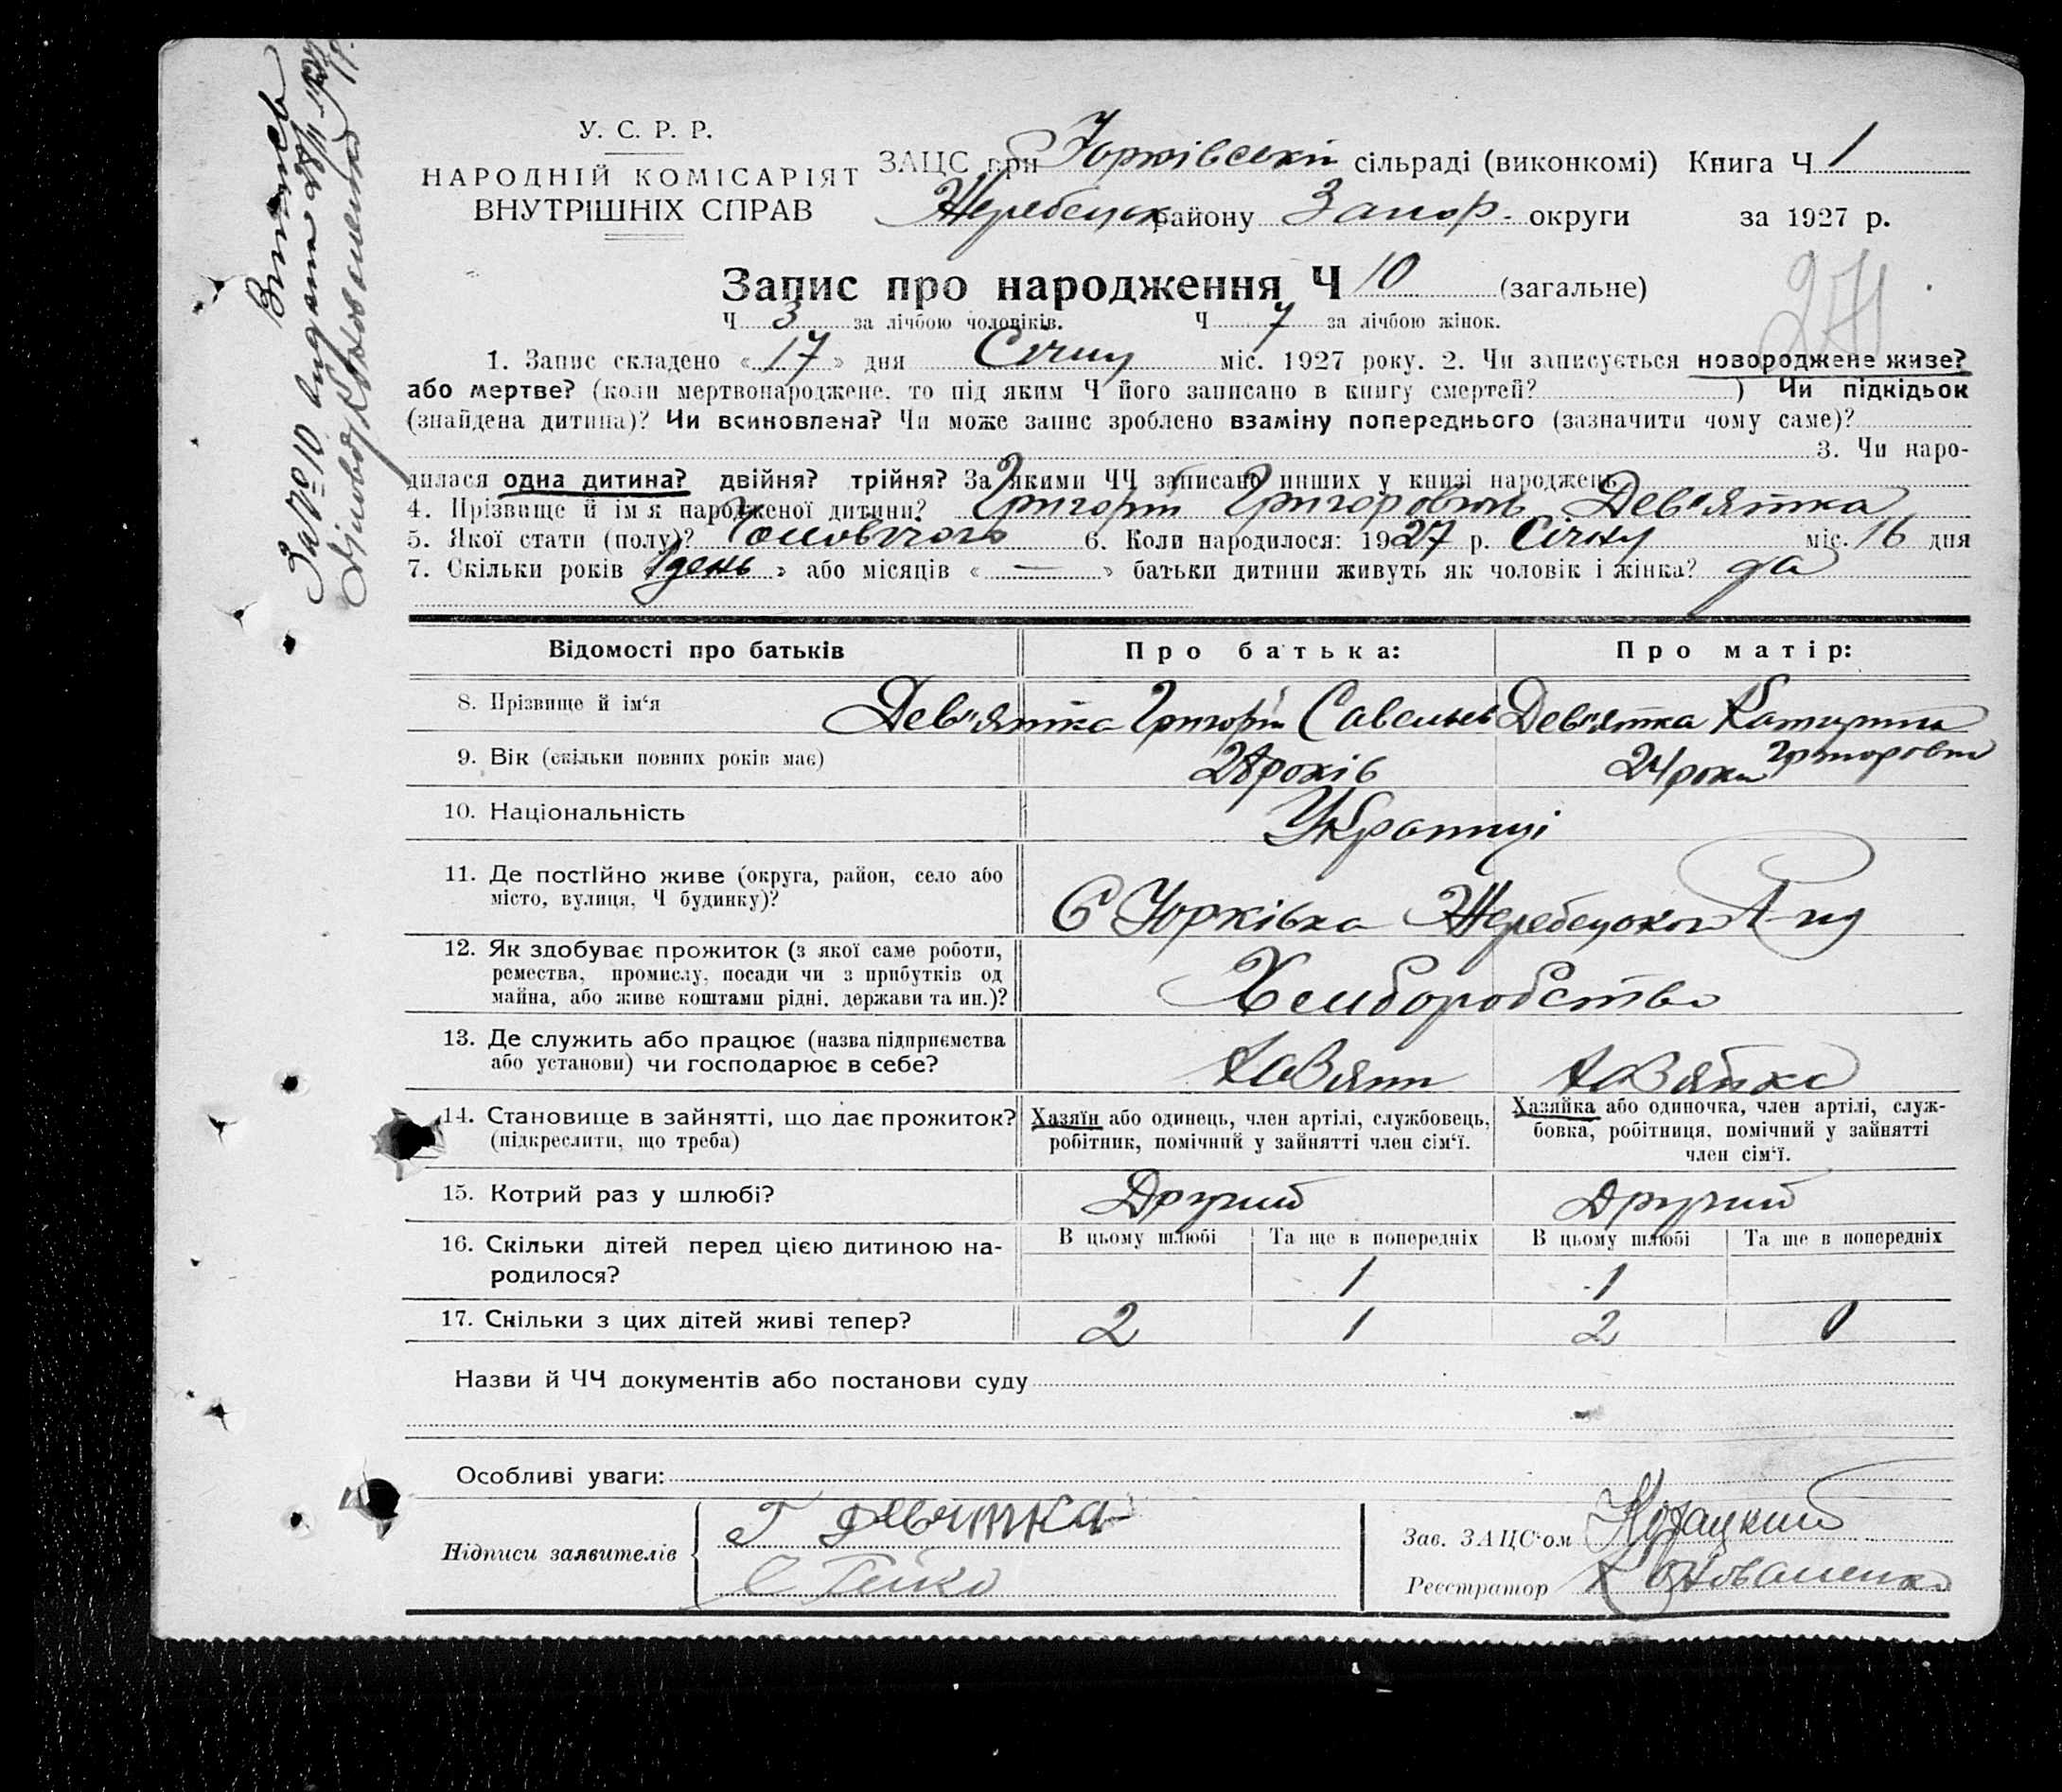 У. С. Р. Р.
НАРОДНІЙ КОМІСАРІЯТ
ВНУТРІШНІХ СПРАВ
ЗАЦС при Юрківській сільраді (виконкомі) Книга Ч 1
Жеребецьк району Запор. округи за 1927 р.
Запис про народження Ч 10 (загальне)
Ч 3 за лічбою чоловіків. Ч 7 за лічбою жінок.
271
1. Запис складено « 17 » дня Січня міс. 1927 року. 2. Чи записується новороджене живе?
або мертве? (коли мертвонароджене, то під яким Ч його записано в книгу смертей? ) Чи підкідьок
(знайдена дитина)? Чи всиновлена? Чи може запис зроблено взаміну попереднього (зазначити чому саме)?
3. Чи наро-
дилася одна дитина? двійня? трійня? За якими ЧЧ записано инших у книзі народжень
4. Прізвище й ім'я народженої дитини? Григорій Григоровіч Дев'ятка
5. Якої стати (полу)? Чоловічого 6. Коли народилося: 1927 р. Січня міс. 16 дня
7. Скільки років « 1 день » або місяців « — » батьки дитини живуть як чоловік і жінка? да
Відомості про батьків Про батька: Про матір:
8. Прізвище й ім'я Дев'ятка Григорій Савельев Дев'ятка Катерина
Григоровна
9. Вік (скільки повних років має) 28 років 24 роки
10. Національність Українці
11. Де постійно живе (округа, район, село або
місто, вулиця, Ч будинку)? С Юрківка Жеребецького Р-ну
12. Як здобуває прожиток (з якої саме роботи,
ремества, промислу, посади чи з прибутків од
майна, або живе коштами рідні, держави та ин.)? Хліборобство
13. Де служить або працює (назва підприємства
або установи) чи господарює в себе?
14. Становище в зайнятті, що дає прожиток?
(підкреслити, що треба)
Хазяїн або одинець, член артілі, службовець,
робітник, помічний у зайнятті член сім'ї.
Хазяйка або одиночка, член артілі, служ-
бовка, робітниця, помічний у зайнятті
член сім'ї.
15. Котрий раз у шлюбі? Другий Другий
16. Скільки дітей перед цією дитиною на-
родилося?
В цьому шлюбі Та ще в попередніх В цьому шлюбі Та ще в попередніх
1 1
17. Скільки з цих дітей живі тепер? 2 1 2 0
Назви й ЧЧ документів або постанови суду
Особливі уваги:
Підписи заявителів Г Девятка
Зав. ЗАЦС'ом Козацкий
Реєстратор
Виписъ
За № 10 видана